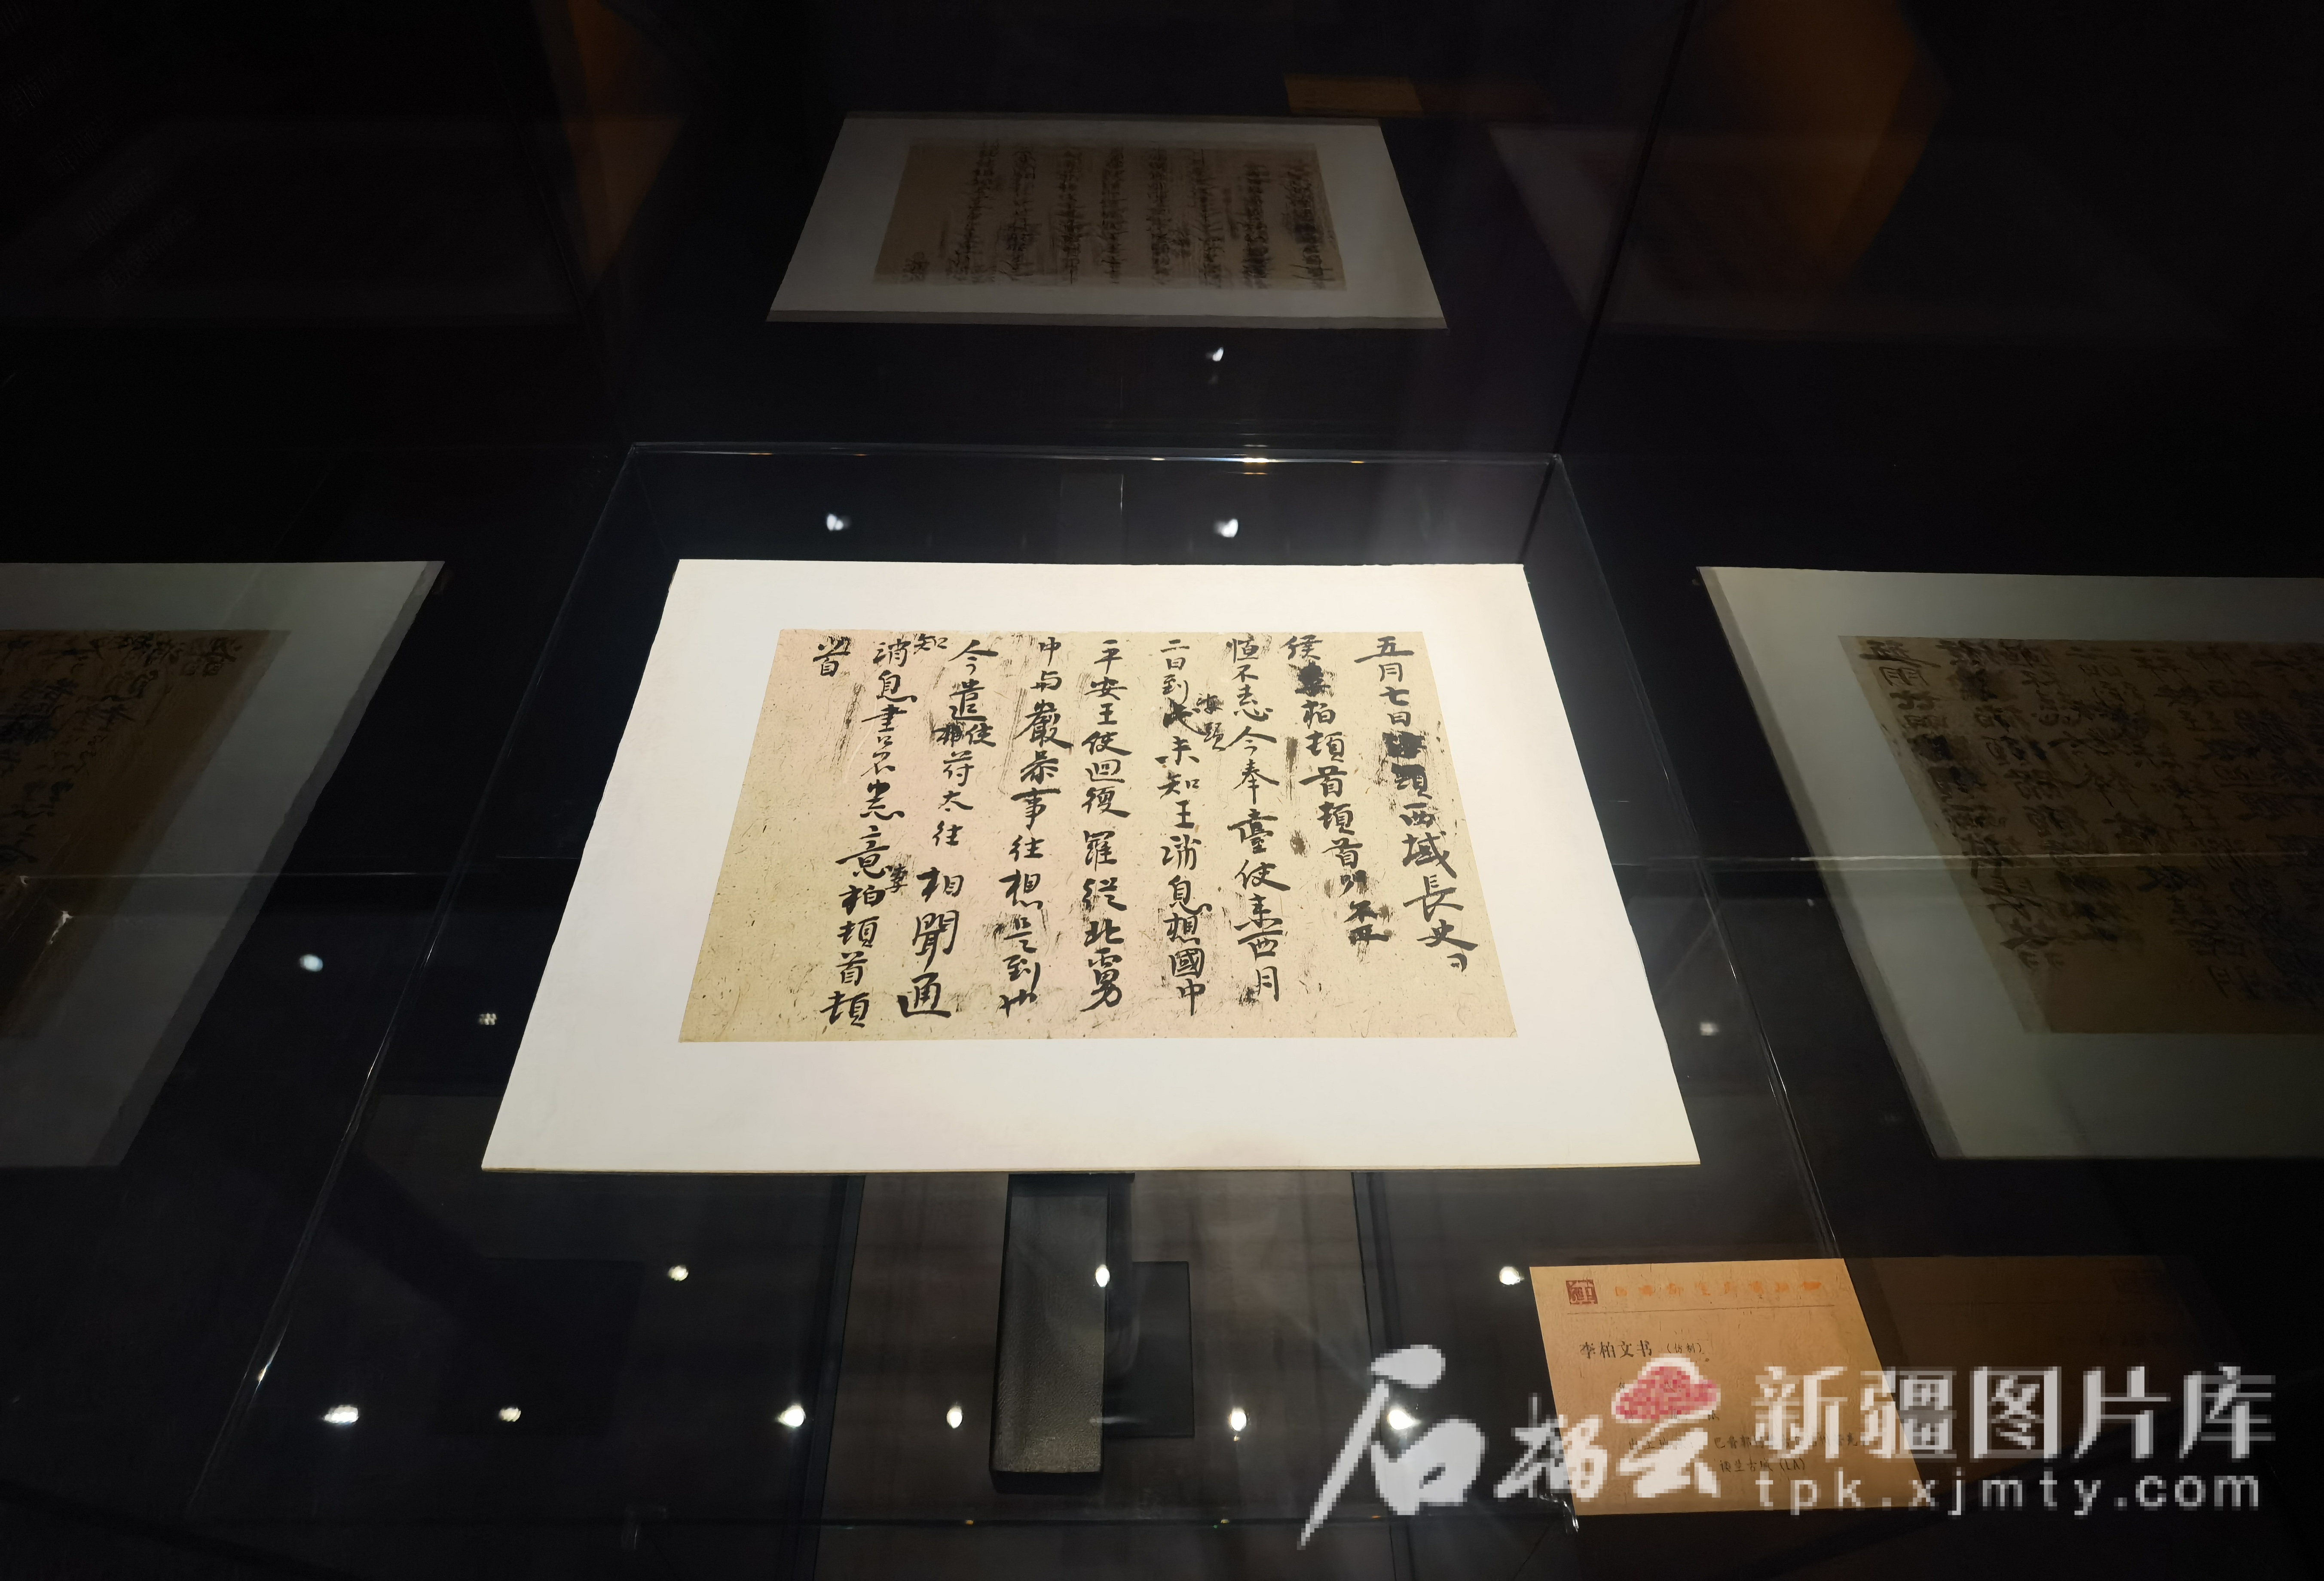 五月七日 頭西域長史
侯李柏頓首頓首
恒不忘今奉臺使來西月
二日到此未知王消息想國中
海頭
平安王使迴復羅從北虜
中与嚴參事往想是到也
今遣使苻太往相聞通
知
消息書不悉意李柏頓首頓
首
李柏文书
楼兰古城（LA）
石榴云
新疆图片库
tpk.xjmty.com